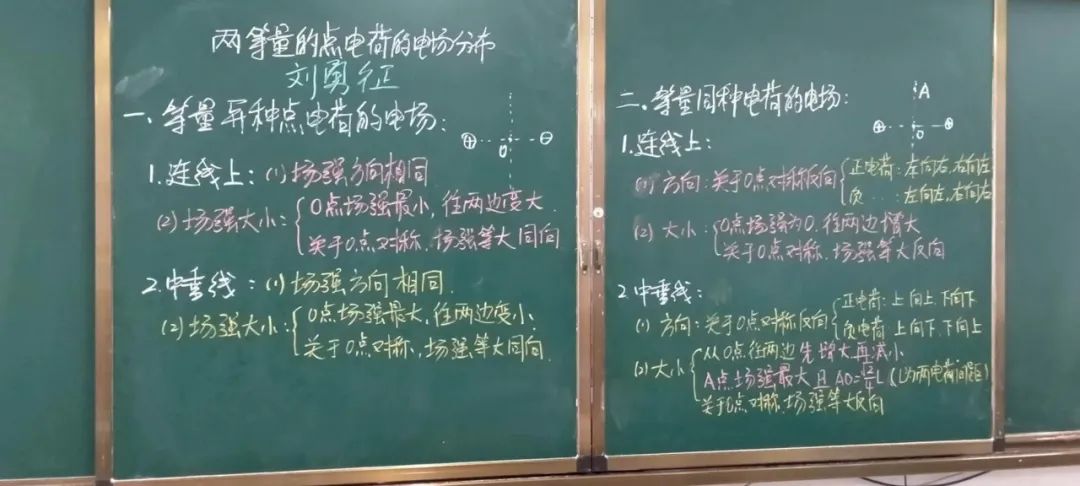 两等量的点电荷的电场分布
刘勇征
一、等量异种点电荷的电场:
⊕ O ⊖
1.连线上: (1)场强方向相同
(2)场强大小: { O点场强最小,往两边变大
关于O点对称,场强等大同向
2.中垂线: (1)场强方向相同.
(2)场强大小: { O点场强最大,往两边变小.
关于O点对称,场强等大同向.
二、等量同种电荷的电场:
A
⊕ O ⊕
1.连线上:
(1)方向:关于O点对称反向 { 正电荷:左向右,右向左
负 〃:左向左,右向右
(2)大小: { O点场强为0,往两边增大
关于O点对称,场强等大反向
2.中垂线:
(1)方向:关于O点对称反向 { 正电荷:上向上,下向下
负电荷 上向下,下向上
(2)大小 { 从O点往两边先增大再减小
A点场强最大且AO=√2/4L(L为两电荷间距)
关于O点对称,场强等大反向